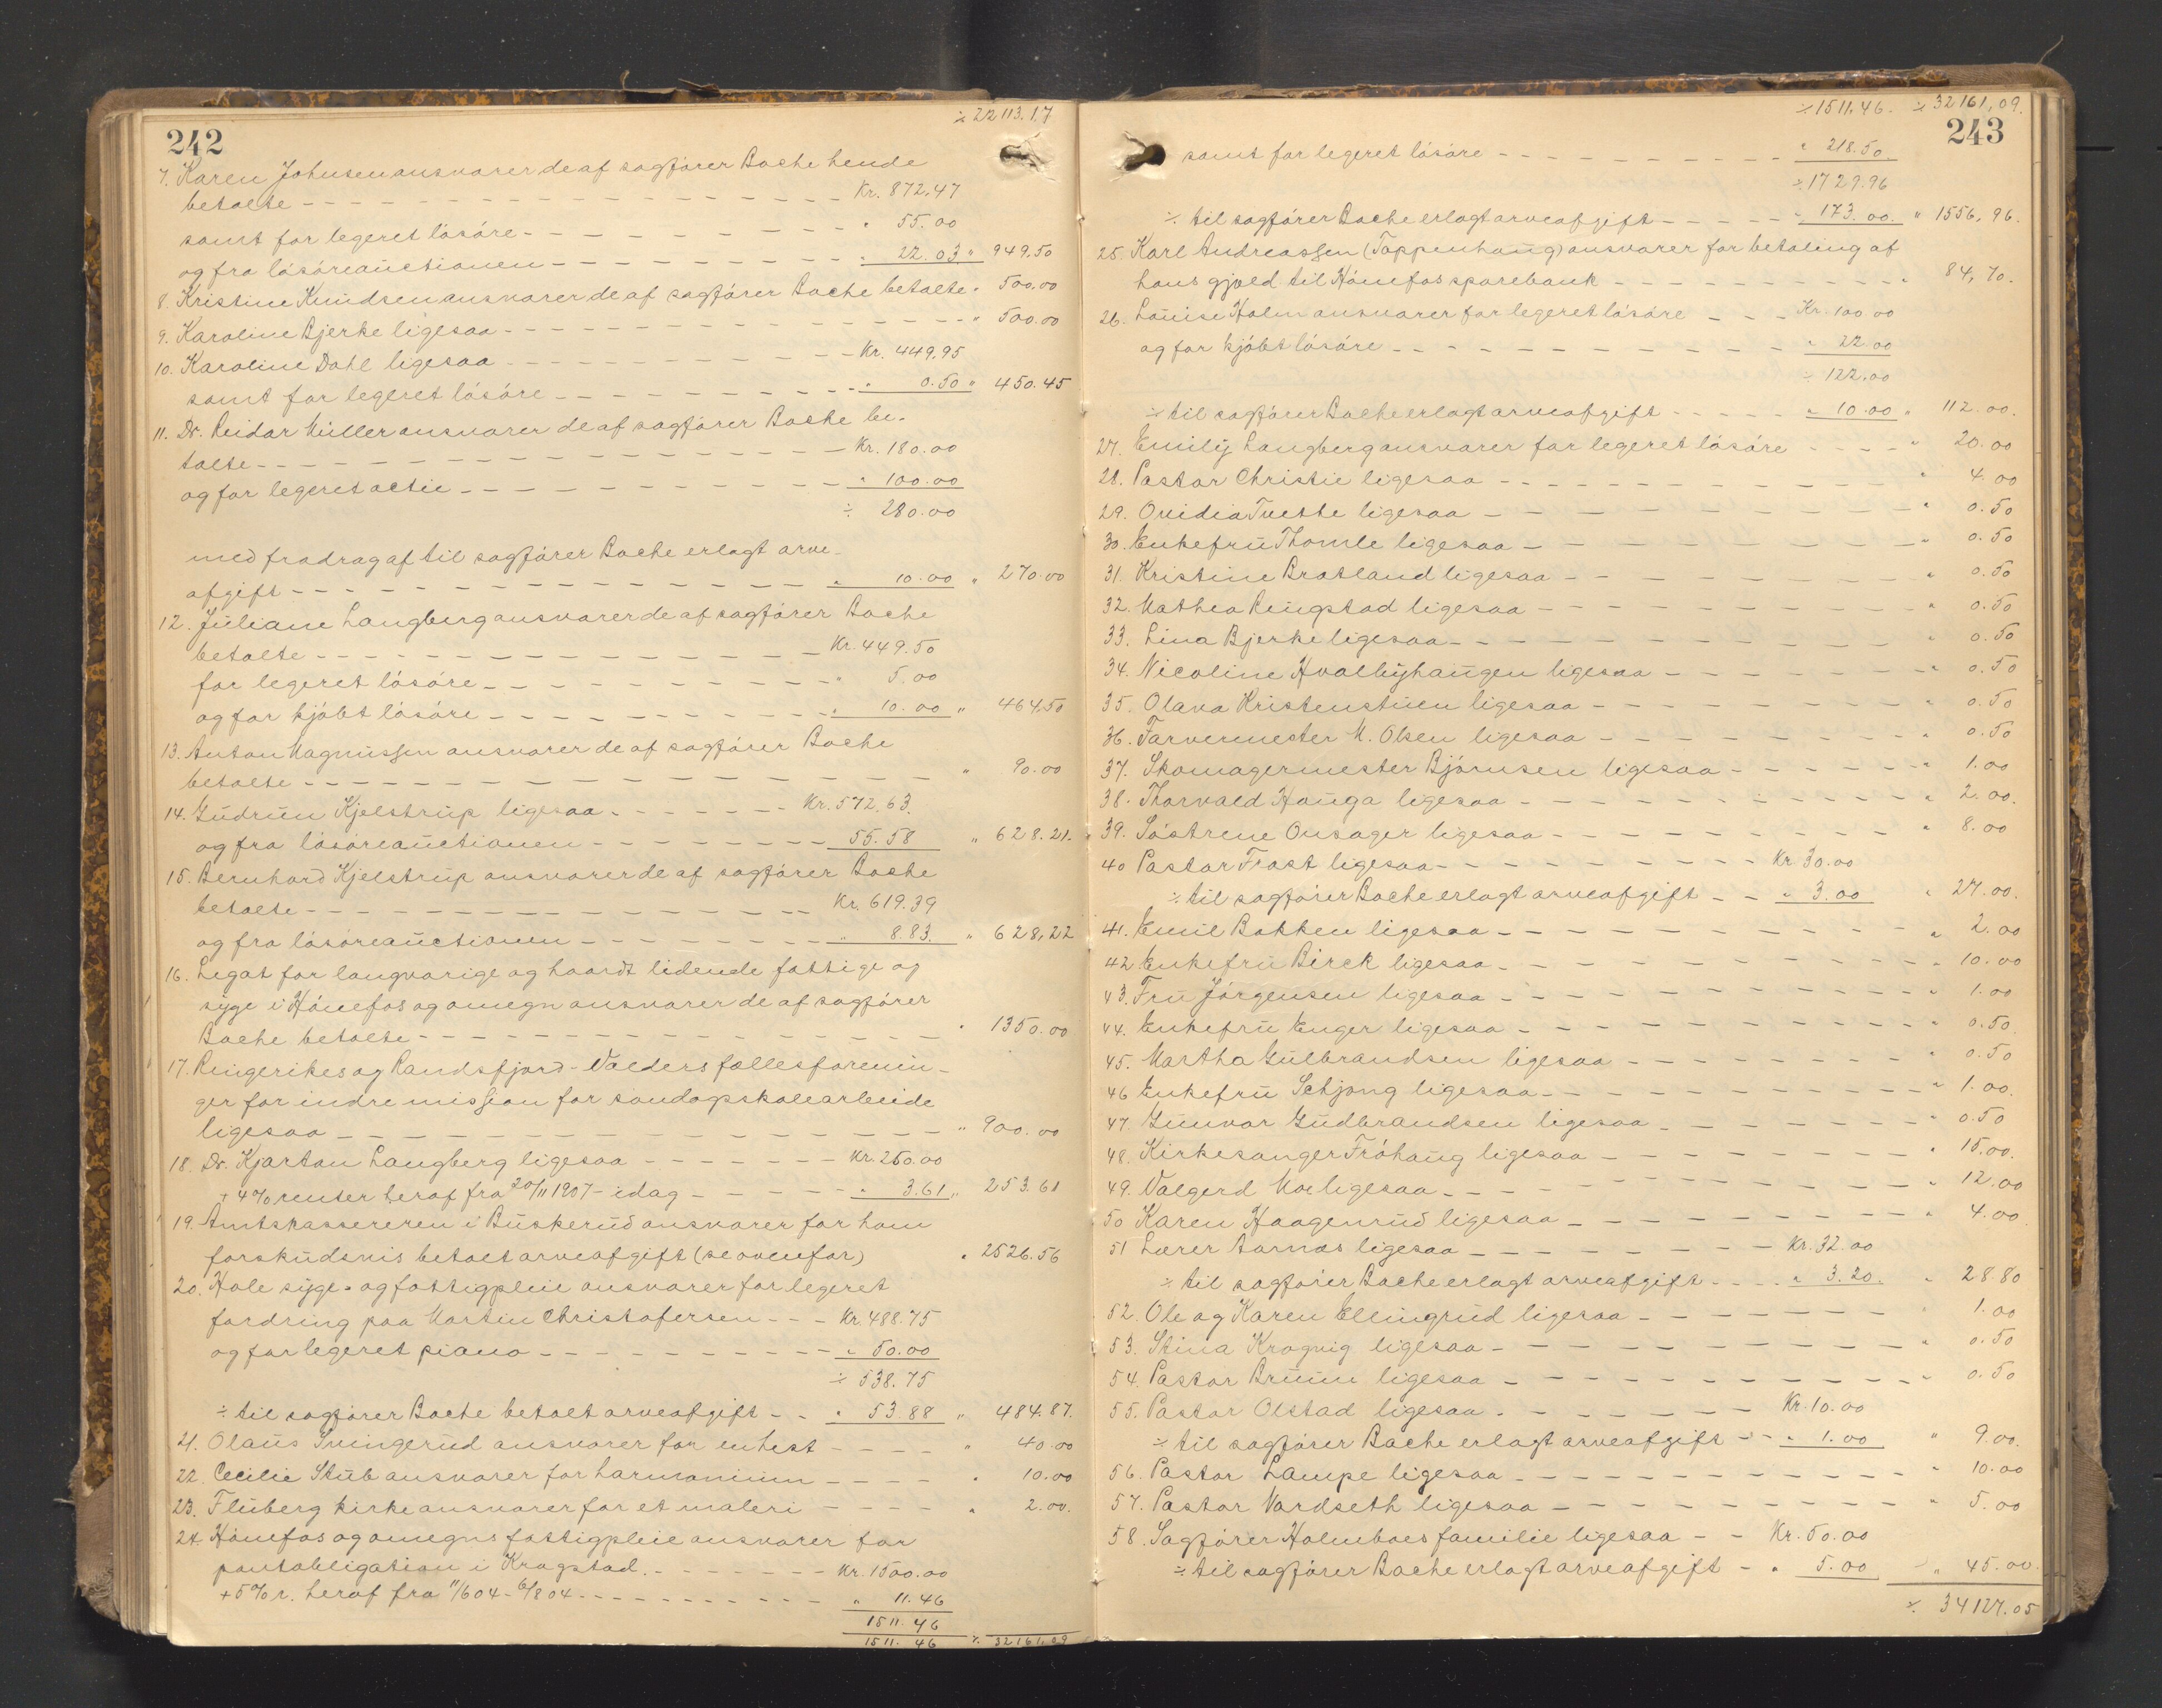 ÷ 22113.17
242
7. Karen Johnsen ansvarer de af sagfører Bache hende
betalte Kr. 872.47
samt for legeret løsøre " 55.00
og fra løsøreauctionen " 22.03 " 949.50
8. Kristine Knudsen ansvarer de af sagfører Bache betalte " 500.00
9. Karoline Bjerke ligesaa " 500.00
10. Karoline Dahl ligesaa Kr. 449.95
samt for legeret løsøre " 0.50 " 450.45
11. Dr. Reidar Müller ansvarer de af sagfører Bache be-
talte Kr. 180.00
og for legeret actie " 100.00
÷ 280.00
med fradrag af til sagfører Bache erlagt arve-
afgift " 10.00 " 270.00
12. Juliane Langberg ansvarer de af sagfører Bache
betalte Kr. 449.50
for legeret løsøre " 5.00
og for kjøbt løsøre " 10.00 " 464.50
13. Anton Magnussen ansvarer de af sagfører Bache
betalte " 90.00
14. Gudrun Kjelstrup ligesaa Kr. 572.63.
og fra løsøreauctionen 55.58 " 628.21.
15. Bernhard Kjelstrup ansvarer de af sagfører Bache
betalte Kr. 619.39
og fra løsøreauctionen " 8.83. " 628,22
16. Legat for langvarige og haardt lidende fattige og
syge i Hønefos og omegn ansvarer de af sagfører
Bache betalte " 1350.00
17. Ringerikes og Randsfjord-Valders fællesforenin-
ger for indre mission for søndagsskolearbeide
ligesaa " 900.00
18. Dr. Kjartan Langberg ligesaa Kr. 250.00
+ 4% renter heraf fra 20/11 1907 - idag " 3.61 " 253.61
19. Amtskassereren i Buskerud ansvarer for ham
forskudsvis betalt arveafgift (se ovenfor) " 2526.56
20. Hole syge- og fattigpleie ansvarer for legeret
fordring paa Martin Christofersen Kr. 488.75
og for legeret piano " 50.00
÷ 538.75
÷ til sagfører Bache betalt arveafgift " 53.88 " 484.87.
21. Olaus Svingerud ansvarer for en hest " 40.00
22. Cecilie Stub ansvarer for harmonium " 10.00
23. Fluberg kirke ansvarer for et maleri " 2.00.
24. Hønefos og omegns fattigpleie ansvarer for
pantobligation i Kragstad Kr. 1500.00
+ 5% r. heraf fra 11/6 04 - 6/8 04 " 11.46
1511.46
1511.46 ÷ 32161.09
÷ 1511,46. ÷ 32161,09.
243
samt for legeret løsøre " 218.50
÷ 1729.96
÷ til sagfører Bache erlagt arveafgift " 173.00. " 1556,96.
25. Karl Andreassen (Tappenhaug) ansvarer for betaling af
hans gjæld til Hønefos sparebank " 84,70.
26. Louise Holm ansvarer for legeret løsøre Kr. 100.00
og for kjøbt løsøre " 22.00
÷ 122.00
÷ til sagfører Bache erlagt arveafgift " 10.00 " 112.00.
27. Emily Langberg ansvarer for legeret løsøre " 20.00
28. Pastor Christie ligesaa " 4.00
29. Ovidia Tvethe ligesaa " 0.50
30. Enkefru Thomle ligesaa " 0.50
31. Kristine Bratland ligesaa " 0.50
32. Mathea Ringstad ligesaa " 0.50
33. Lina Bjerke ligesaa " 0.50
34. Nicoline Hvalbyhaugen ligesaa " 0.50
35. Olava Kristenstuen ligesaa " 0.50
36. Farvermester M. Olsen ligesaa " 0.50
37. Skomagermester Bjørnsen ligesaa " 1.00
38. Thorvald Hauga ligesaa " 2.00.
39. Søstrene Onsager ligesaa " 8.00
40 Pastor Frost ligesaa Kr. 30.00
÷ til sagfører Bache erlagt arveafgift " 3.00 " 27.00.
41. Emil Bakken ligesaa " 2.00
42 Enkefru Birck ligesaa " 10.00
43. Fru Jørgensen ligesaa " 1.00
44. Enkefru Enger ligesaa " 0.50
45. Martha Gulbrandsen ligesaa " 0.50
46 Enkefru Schjong ligesaa " 1.00.
47. Gunvor Gudbrandsen ligesaa " 0.50
48. Kirkesanger Frøhaug ligesaa " 15.00.
49. Valgerd Moe ligesaa " 12.00
50 Karen Haagenrud ligesaa " 4.00
51 Lærer Aarnæs ligesaa Kr. 32.00
÷ til sagfører Bache erlagt arveafgift " 3.20. " 28.80
52. Ole og Karen Ellingrud ligesaa " 1.00
53. Stina Kragvig ligesaa " 0.50
54. Pastor Bruun ligesaa " 0.50
55. Pastor Olstad ligesaa Kr. 10.00
÷ til sagfører Bache erlagt arveafgift " 1.00 " 9.00.
56. Pastor Lampe ligesaa " 10.00
57. Pastor Vardseth ligesaa " 5.00
58. Sagfører Holmboes familie ligesaa Kr. 50.00
÷ til sagfører Bache erlagt arveafgift " 5.00 " 45.00.
÷ 34127.05